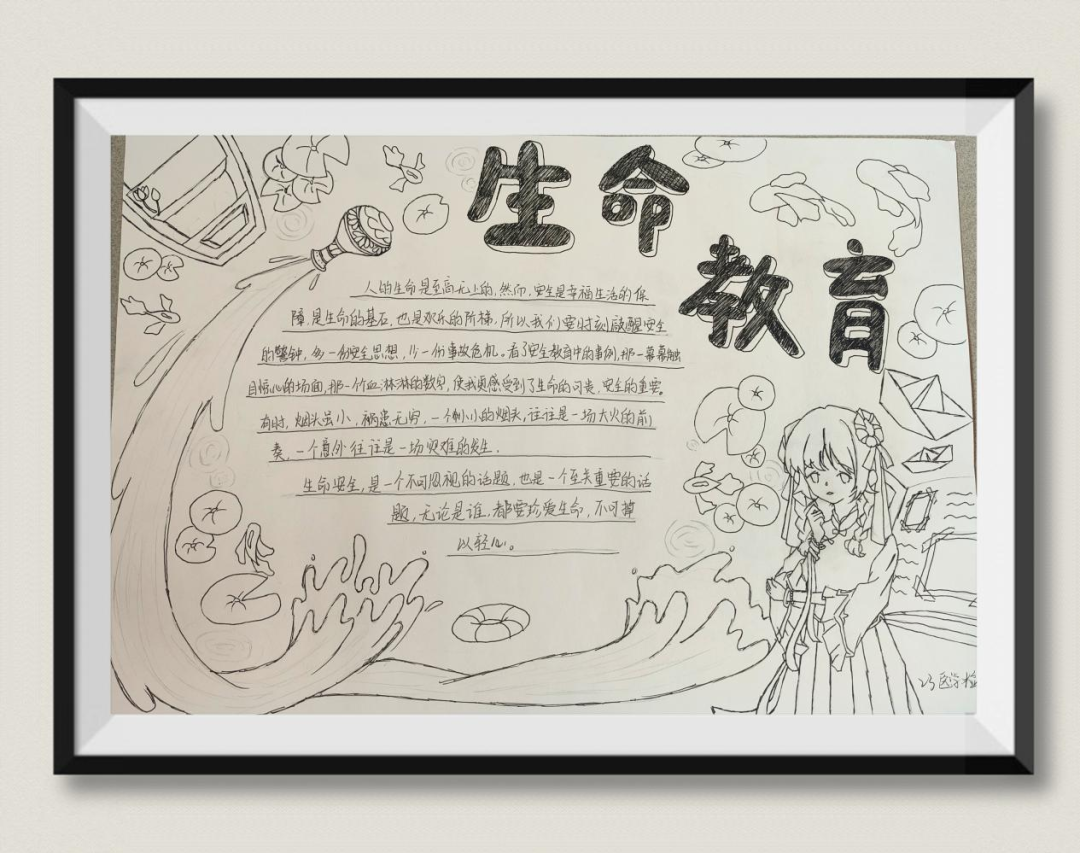 生命
教育
人的生命是至高无上的,然而,安全是幸福生活的保
障,是生命的基石,也是欢乐的阶梯,所以我们要时刻敲醒安全
的警钟,多一份安全思想,少一份事故危机。看了安全教育中的事例,那一幕幕触
目惊心的场面,那一个血淋淋的教训,使我更感受到了生命的可贵,安全的重要。
有时,烟头虽小,祸患无穷,一个小小的烟头,往往是一场大火的前
奏,一个意外往往是一场灾难的发生.
生命安全,是一个不可忽视的话题,也是一个至关重要的话
题,无论是谁,都要珍爱生命,不可掉
以轻心。
23医学检